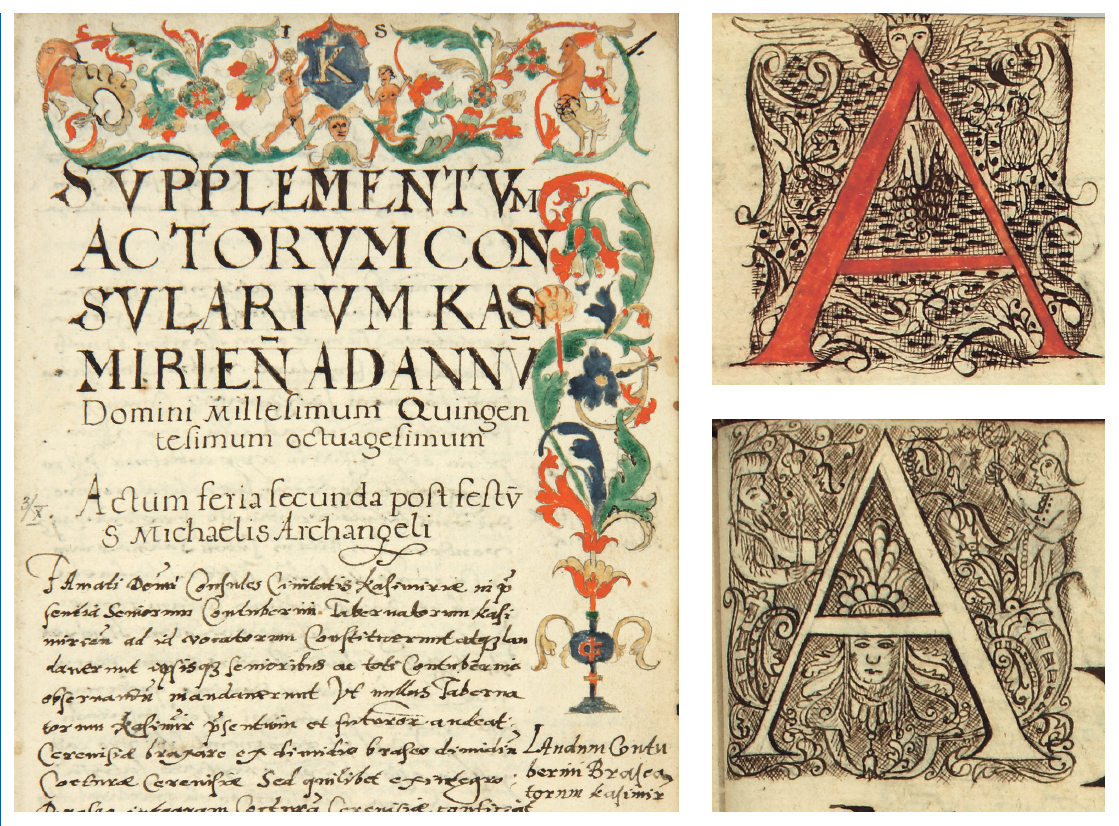 S I S
K
SVPPLEMENTVM
ACTORVM CON
SVLARIVM KASI
MIRIEÑ AD ANNṼ
Domini Millesimum Quingen
tesimum octuagesimum
Actum feria secunda post festũ
S Michaelis Archangeli
Famati Domi Consules Civitatis Kasimiriæ in p̃
sentia Seniorum Contubernii Tabernatorum Kasi
mircen ad id vocatorum Constituerunt atqz lau
daverunt ipsisqz Senioribus ac toti Contubernio
mandaverunt Vt nullus Taberna
torum Kasimir p̃sentium et futoror audeat
Cerevisiæ braxare ex dimidio braseo dimidiã
Cocturæ Cerevisiæ Sed quilibet ex integro
Cocturã Cerevisiæ
Laudum Contu
berini Braxea
torum Kasimir
A
A